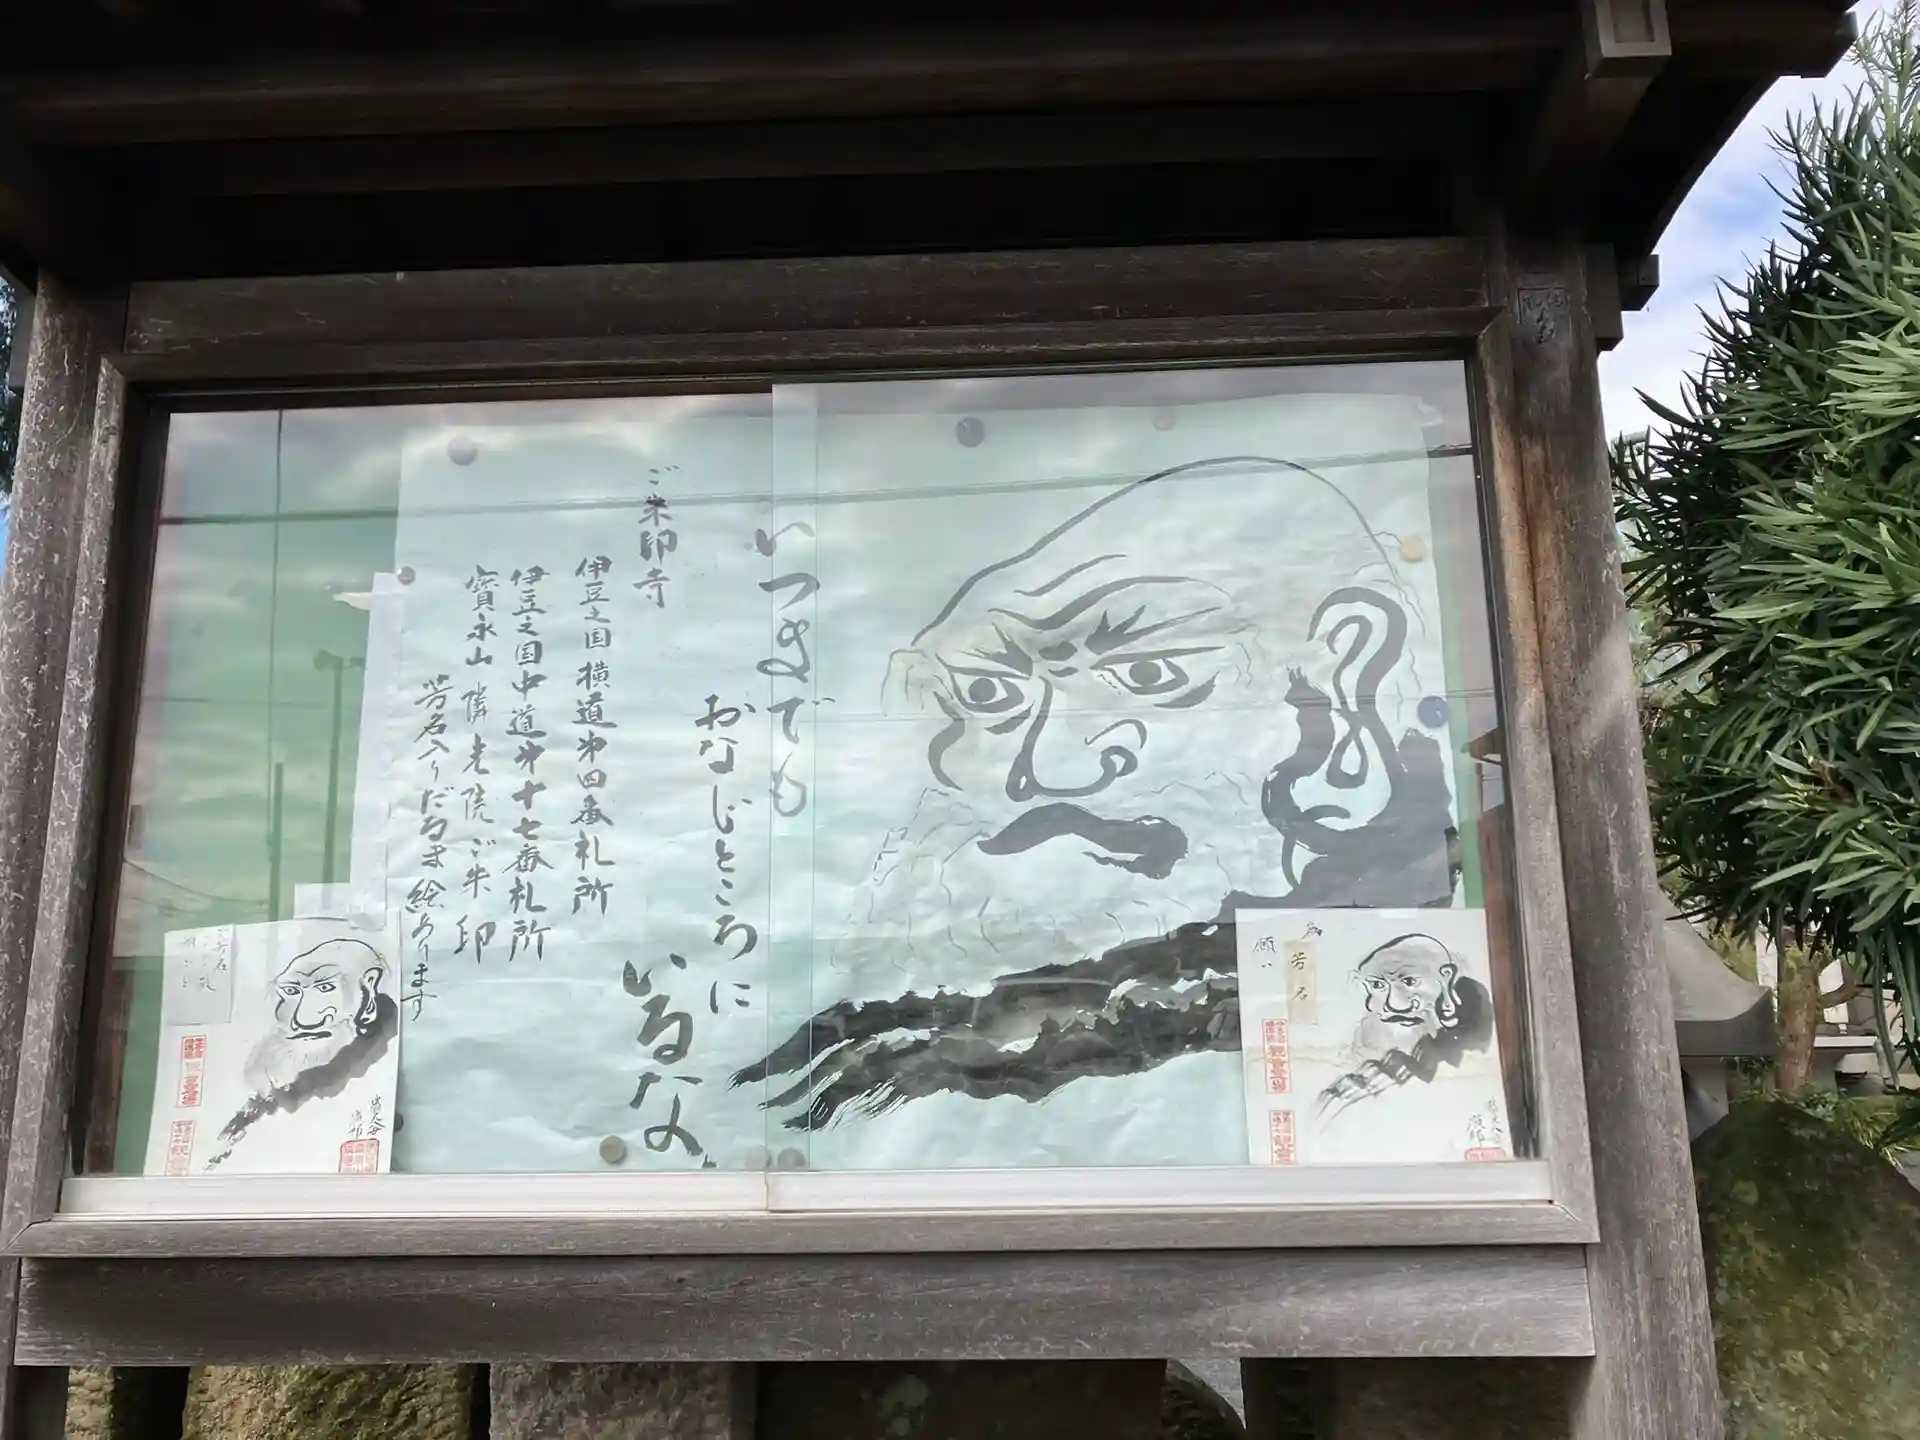 いつまでも
おなじところに
いるなよ
ご朱印寺
伊豆之国横道第四番札所
伊豆之国中道第十七番札所
寳永山隣光院ご朱印
芳名入りだるま絵あります
為
芳名
願い